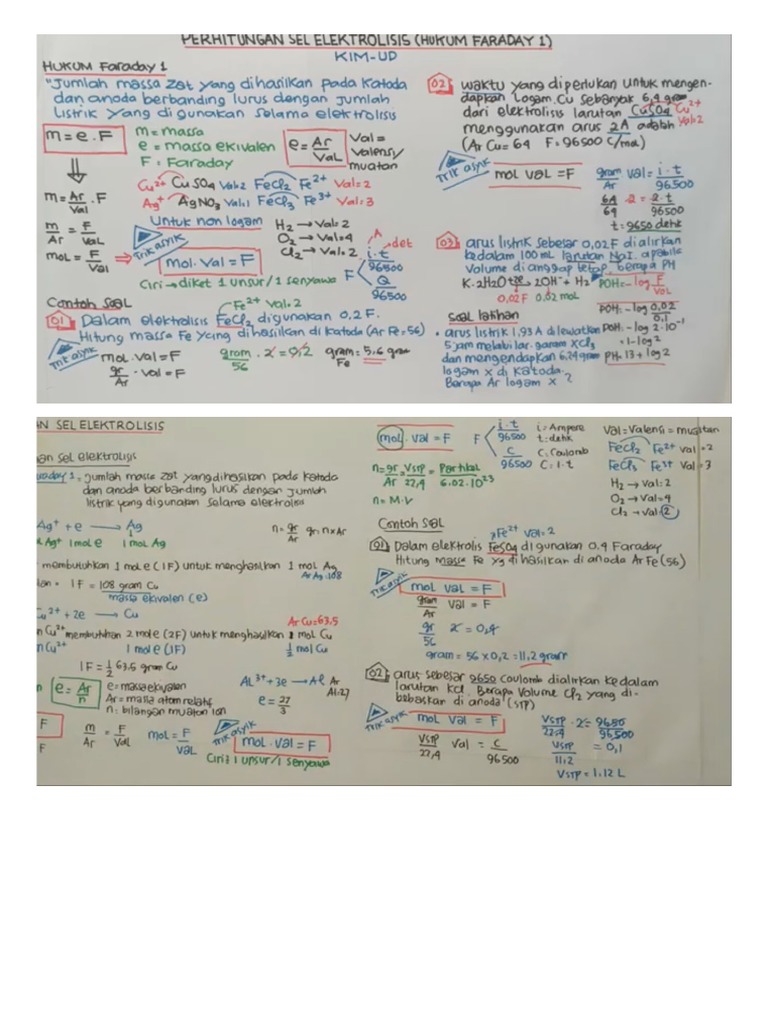 PERHITUNGAN SEL ELEKTROLISIS (HUKUM FARADAY 1)
KIM-UD
HUKUM Faraday 1
"Jumlah massa zat yang dihasilkan pada katoda
dan anoda berbanding lurus dengan jumlah
listrik yang digunakan selama elektrolisis
m = e . F
m = massa
e = massa ekivalen
F = Faraday
e = Ar/Val
Val =
Valensi/
muatan
m = Ar/Val . F
m/Ar = F/Val
mol = F/Val
Cu2+ CuSO4 Val=2 FeCl2 Fe2+ Val=2
Ag+ AgNO3 Val=1 FeCl3 Fe3+ Val=3
Untuk non logam
H2 → Val=2
O2 → Val=4
Cl2 → Val=2
Trik asyik
mol . Val = F
Ciri → diket 1 unsur/1 senyawa
F
A
det
i.t/96500
Q/96500
Contoh Soal
Fe2+ Val=2
01 Dalam elektrolisis FeCl2 digunakan 0,2 F.
Hitung massa Fe yang dihasilkan di katoda (Ar Fe=56)
Trik asyik
mol . Val = F
gr/Ar . Val = F
gram/56 . 2 = 0,2
gram Fe = 5,6 gram
02 waktu yang diperlukan untuk mengen-
dapkan logam Cu sebanyak 6,4 gram
dari elektrolisis larutan CuSO4 Cu2+
menggunakan arus 2A adalah Val=2
(Ar Cu= 64 F= 96500 C/mol)
Trik asyik
mol Val = F
gram/Ar Val = i.t/96500
.2 = 2.t/96500
t = 9650 detik
03 arus listrik sebesar 0,02 F dialirkan
kedalam 100 mL larutan NaI. apabila
volume dianggap tetap, berapa PH
K. 2H2O+2e → 2OH- + H2
0,02 F 0.02 mol
POH = -log F/Vol
POH = -log 0,02/0,1
POH = -log 2.10-1
= 1-log 2
PH = 13 + log 2
Soal latihan
• arus listrik 1,93 A dilewatkan
5 jam melalui lar. garam XCl2
dan mengendapkan gram
logam X di katoda.
Berapa Ar logam X ?
AN SEL ELEKTROLISIS
an sel elektrolisis
araday 1 = jumlah massa zat yang dihasilkan pada katoda
dan anoda berbanding lurus dengan jumlah
listrik yang digunakan selama elektrolisis
Ag+ + e → Ag
Ag+ 1 mol e 1 mol Ag
n = gr/Ar gr = n x Ar
membutuhkan 1 mol e (1F) untuk menghasilkan 1 mol Ag
Ar Ag=108
1F = 108 gram Cu
massa ekivalen (e)
Cu2+ + 2e → Cu
Ar Cu=63.5
n Cu2+ membutuhkan 2 mol e (2F) untuk menghasilkan 1 mol Cu
n Cu2+ 1 mol e (1F) 1/2 mol Cu
1F = 1/2 63.5 gram Cu
e = Ar/n
e = massa ekivalen
Ar = massa atom relatif
n = bilangan muatan ion
Al3+ + 3e → Al Ar Al=27
e = 27/3
F
F
m/Ar = F/Val
mol = F/Val
Trik asyik
mol . Val = F
Ciri2 1 unsur/1 senyawa
mol . Val = F
F
i.t/96500
C/96500
i = Ampere
t = detik
C = Coulomb
C = i.t
Val = Valensi = muatan
FeCl2 Fe2+ Val = 2
FeCl3 Fe3+ Val = 3
H2 → Val = 2
O2 → Val = 4
Cl2 → Val = 2
n = gr/Ar = VSTP/22,4 = Partikel/6.02.10 23
n = M.V
Contoh Soal
Fe2+ Val = 2
01 Dalam elektrolis FeSO4 digunakan 0.4 Faraday
Hitung massa Fe yg dihasilkan di anoda Ar Fe (56)
Trik asyik
mol Val = F
gram/Ar Val = F
gr/56 2 = 0,4
gram = 56 x 0,2 = 11.2 gram
02 arus sebesar 9650 Coulomb dialirkan kedalam
larutan kcl. Berapa Volume Cl2 yang di-
bebaskan di anoda! (STP)
Trik asyik
mol Val = F
VSTP/22,4 Val = C/96500
VSTP/22,4 . 2 = 9650/96500
VSTP/11.2 = 0,1
VSTP = 1.12 L